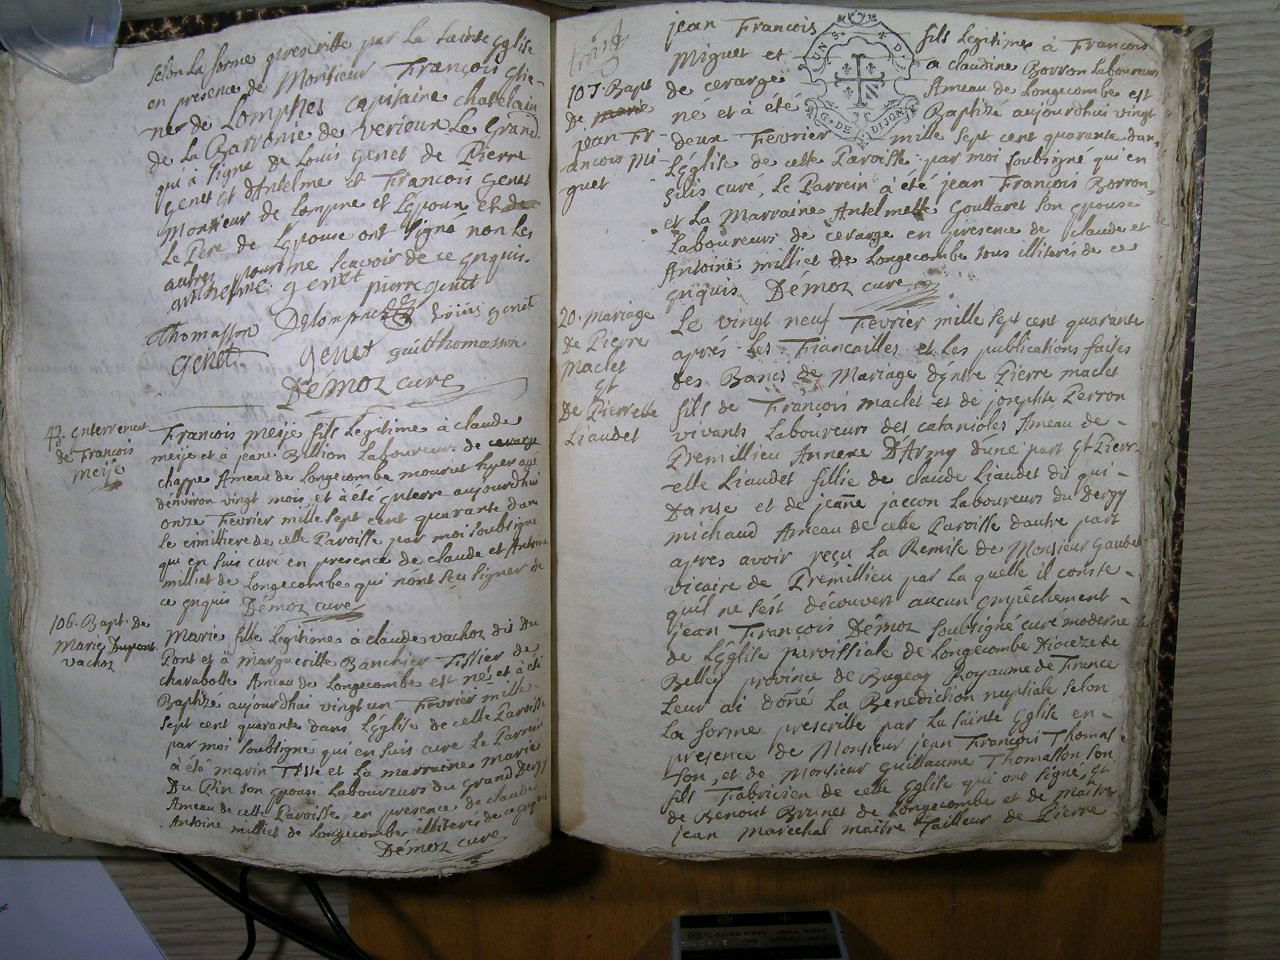 selon la forme prescritte par La Sainte Eglise
en presence de Monsieur François Etie-
nne de Lompnes capitaine chatelain
de La Barronie de Verieux Le Grand
qui à signé de Louis genet de Pierre
genet et d'Antelme et François genet
Monsieur de Lompne et L'epoux et de
Le Pere de L'epouse ont signé non Les
autres pour ne scavoir de ce enquis.
anthelme genet pierre genet
Thomasson Delompnes Louis genet
genet genet guilthomasson
Démoz curé
43. enterrement
de François
meije
François meije fils Legitime à claude
meije et à jeane Billion Laboureurs de cerarge
chappe Ameau de Longecombe mourut hyer agé
d'environ vingt mois et à été enterre aujourdhui
onze Fevrier mille sept cent quarante dans
Le cimittiere de cette Paroisse par moi soubsigné
qui en suis curé en presence de claude et Antoine
milliet de Longecombe qui n'ont sçu signer de
ce enquis Démoz curé
106. Bapt. de
Marie Dupont
vachoz
Marie fille Legitime à claude vachoz dit Du
Pont et à Marguerille Banchier Tissier de
charabotte Ameau de Longecombe est née et à été
Baptizé aujourdhui vingt un Fevrier mille
sept cent quarante dans L'église de cette Paroisse
par moi soubsigné qui en suis curé Le Parrein
à été marin Teste et La marraine marie
Du Pin son epouse Laboureurs du grand Dergy
Ameau de cette Paroisse en presence de claude
Antoine milliet de Longecombe illiteres de ce enquis
Démoz curé
107. Bapt
de marie
jean Fr-
ancois Mi-
guet
jean François fils Legitime à François
Miguet et à claudine Borron Laboureurs
de cerarge Ameau de Longecombe est
né et à été Baptizé aujourdhui vingt
deux Fevrier mille sept cent quarante dans
L'église de cette Paroisse par moi soubsigné qui en
suis curé, Le Parrein à été jean François Borron
et La Marraine Antelmette Gouttaret son epouse
Laboureurs de cerarge en presence de claude et
Antoine milliet de Longecombe tous illiterés de ce
enquis Démoz curé
G. DE DIJON
20. Mariage
de Pierre
Maclet
et
De Pierrette
Liaudet
Le vingt neuf Fevrier mille sept cent quarante
aprés les Fiancailles et Les publications faites
des Bancs de Mariage d'entre Pierre maclet
fils de François maclet et de josephte Perron
vivants Laboureurs des catanioles Ameau de-
Premillieu Annexe D'Army d'une part Et Pierr-
-ette Liaudet fillie de claude Liaudet dit qui-
Danse et de jeanne jaccon Laboureurs du Dergy
michaud Ameau de cette Paroisse d'autre part
apres avoir reçu La Remise de Monsieur Gaudet
vicaire de Premillieu par La quelle il conste-
qu'il ne s'est découvert aucun empêchement-
jean François Démoz soubsigné curé moderne
de L'Eglise paroissiale de Longecombe Diocèze de
Belley province de Bugeay Royaume de France
Leur ai doñé La Benediction nuptiale selon
La forme prescritte par La Sainte Eglise en-
presence de Monsieur jean François Thomas-
son, et de Monsieur Guillaume Thomasson son
fils Fabricien de cette Eglise qui ont signé, et
de Benoit Brunet de Longecombe et de maitre
jean Marechal maitre Tailleur de Pierre